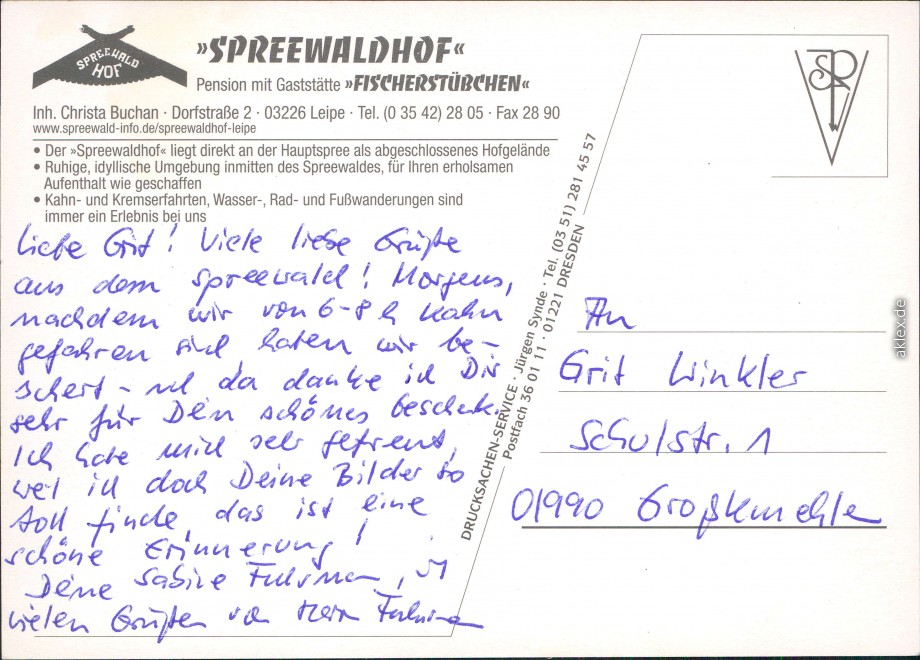 SPREEWALD
HOF
»SPREEWALDHOF«
Pension mit Gaststätte »FISCHERSTÜBCHEN«
Inh. Christa Buchan · Dorfstraße 2 · 03226 Leipe · Tel. (0 35 42) 28 05 · Fax 28 90
www.spreewald-info.de/spreewaldhof-leipe
• Der »Spreewaldhof« liegt direkt an der Hauptspree als abgeschlossenes Hofgelände
• Ruhige, idyllische Umgebung inmitten des Spreewaldes, für Ihren erholsamen
Aufenthalt wie geschaffen
• Kahn- und Kremserfahrten, Wasser-, Rad- und Fußwanderungen sind
immer ein Erlebnis bei uns
Liebe Grit! Viele liebe Grüße
aus dem Spreewald! Morgens,
nachdem wir von 6-8 h Kahn
gefahren sind, haben wir be-
schert - und da danke ich Dir
sehr für Dein schönes Geschenk.
Ich habe mich sehr gefreut,
weil ich doch Deine Bilder so
toll finde, das ist eine
schöne Erinnerung!
Deine Sabine Fuhrmann, mit
vielen Grüßen von Herrn Fuhrmann
DRUCKSACHEN-SERVICE · Jürgen Synde · Tel. (03 51) 281 45 57
Postfach 36 01 11 · 01221 DRESDEN
An
Grit Winkler
Schulstr. 1
01990 Großkmehlen
aklex.de